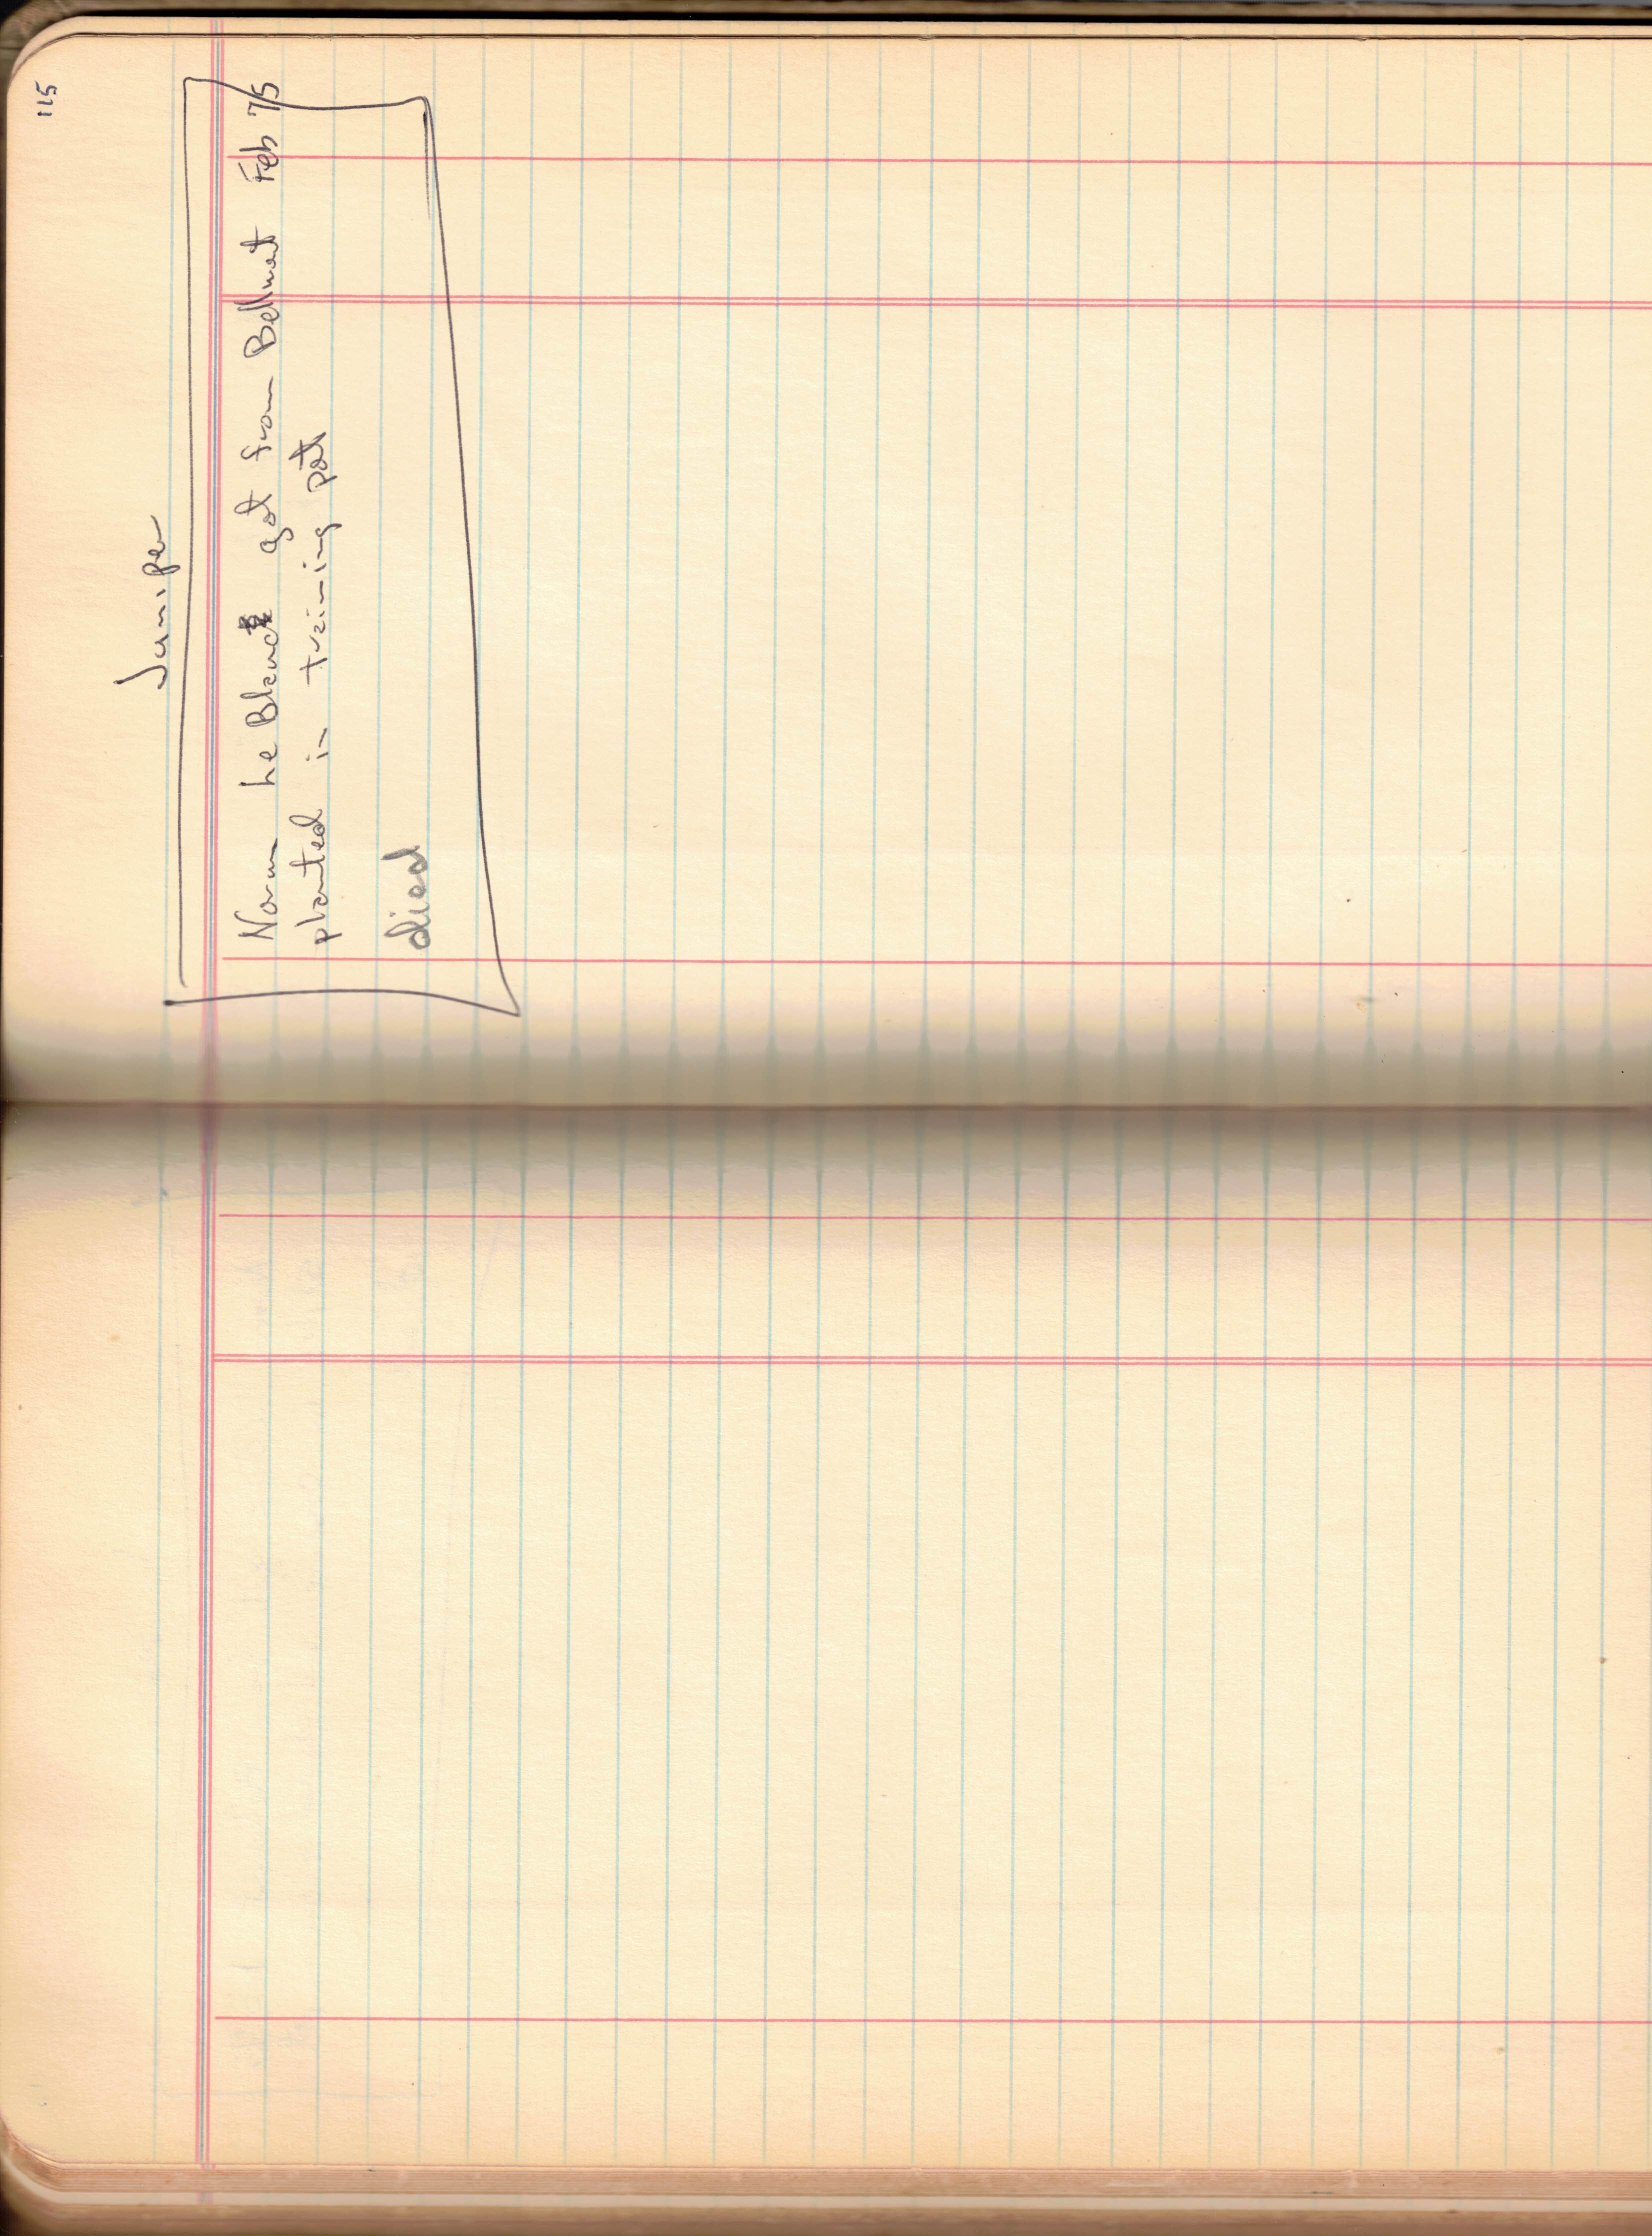 115
Juniper
Norm Le Blanc got from Bellmont Feb 75
planted in training pot
died